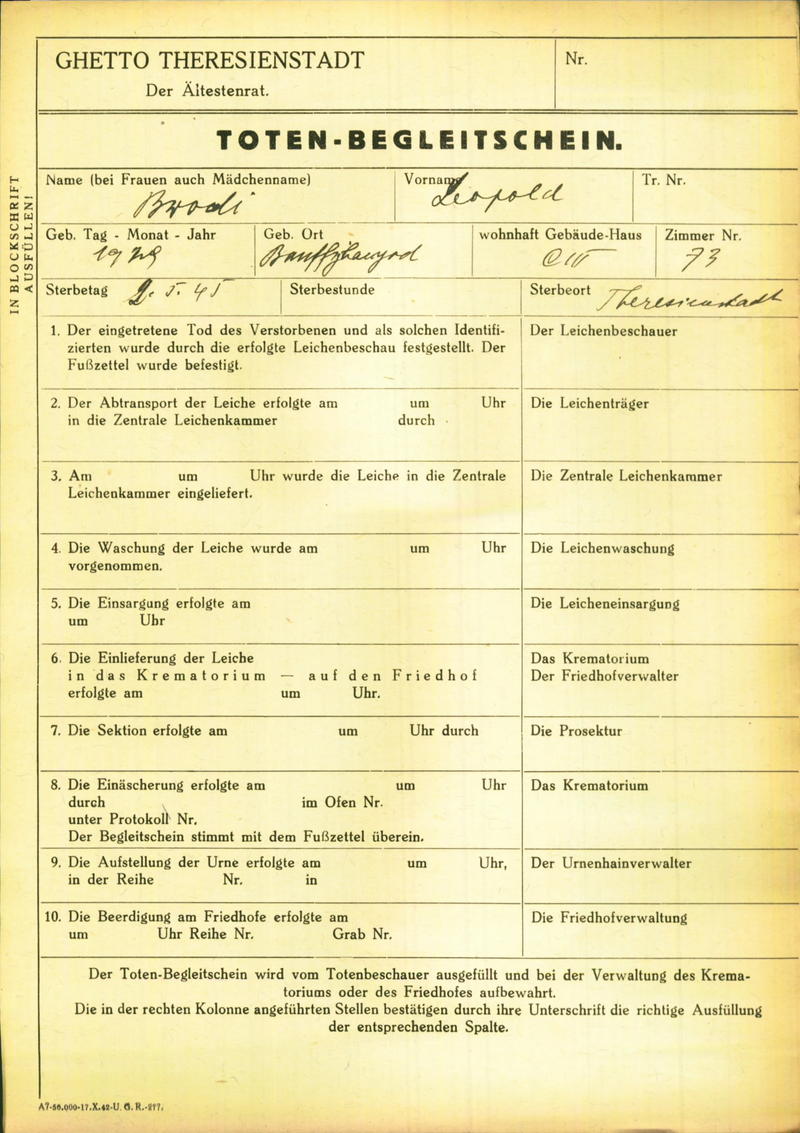 GHETTO THERESIENSTADT
Der Ältestenrat.
Nr.
IN BLOCKSCHRIFT
AUSFÜLLEN!
TOTEN-BEGLEITSCHEIN.
Name (bei Frauen auch Mädchenname)
Brodi
Vorname
Leopold
Tr. Nr.
Geb. Tag - Monat - Jahr
1929
Geb. Ort
Banffyhunyad
wohnhaft Gebäude-Haus
C III
Zimmer Nr.
73
Sterbetag 2. 5. 45
Sterbestunde
Sterbeort Theresienstadt
1. Der eingetretene Tod des Verstorbenen und als solchen Identifi-
zierten wurde durch die erfolgte Leichenbeschau festgestellt. Der
Fußzettel wurde befestigt.
Der Leichenbeschauer
2. Der Abtransport der Leiche erfolgte am um Uhr
in die Zentrale Leichenkammer durch
Die Leichenträger
3. Am um Uhr wurde die Leiche in die Zentrale
Leichenkammer eingeliefert.
Die Zentrale Leichenkammer
4. Die Waschung der Leiche wurde am um Uhr
vorgenommen.
Die Leichenwaschung
5. Die Einsargung erfolgte am
um Uhr
Die Leicheneinsargung
6. Die Einlieferung der Leiche
in das Krematorium — auf den Friedhof
erfolgte am um Uhr.
Das Krematorium
Der Friedhofverwalter
7. Die Sektion erfolgte am um Uhr durch
Die Prosektur
8. Die Einäscherung erfolgte am um Uhr
durch im Ofen Nr.
unter Protokoll Nr.
Der Begleitschein stimmt mit dem Fußzettel überein.
Das Krematorium
9. Die Aufstellung der Urne erfolgte am um Uhr,
in der Reihe Nr. in
Der Urnenhainverwalter
10. Die Beerdigung am Friedhofe erfolgte am
um Uhr Reihe Nr. Grab Nr.
Die Friedhofverwaltung
Der Toten-Begleitschein wird vom Totenbeschauer ausgefüllt und bei der Verwaltung des Krema-
toriums oder des Friedhofes aufbewahrt.
Die in der rechten Kolonne angeführten Stellen bestätigen durch ihre Unterschrift die richtige Ausfüllung
der entsprechenden Spalte.
A7-50.000-17.X.42-U. G. R.-277.